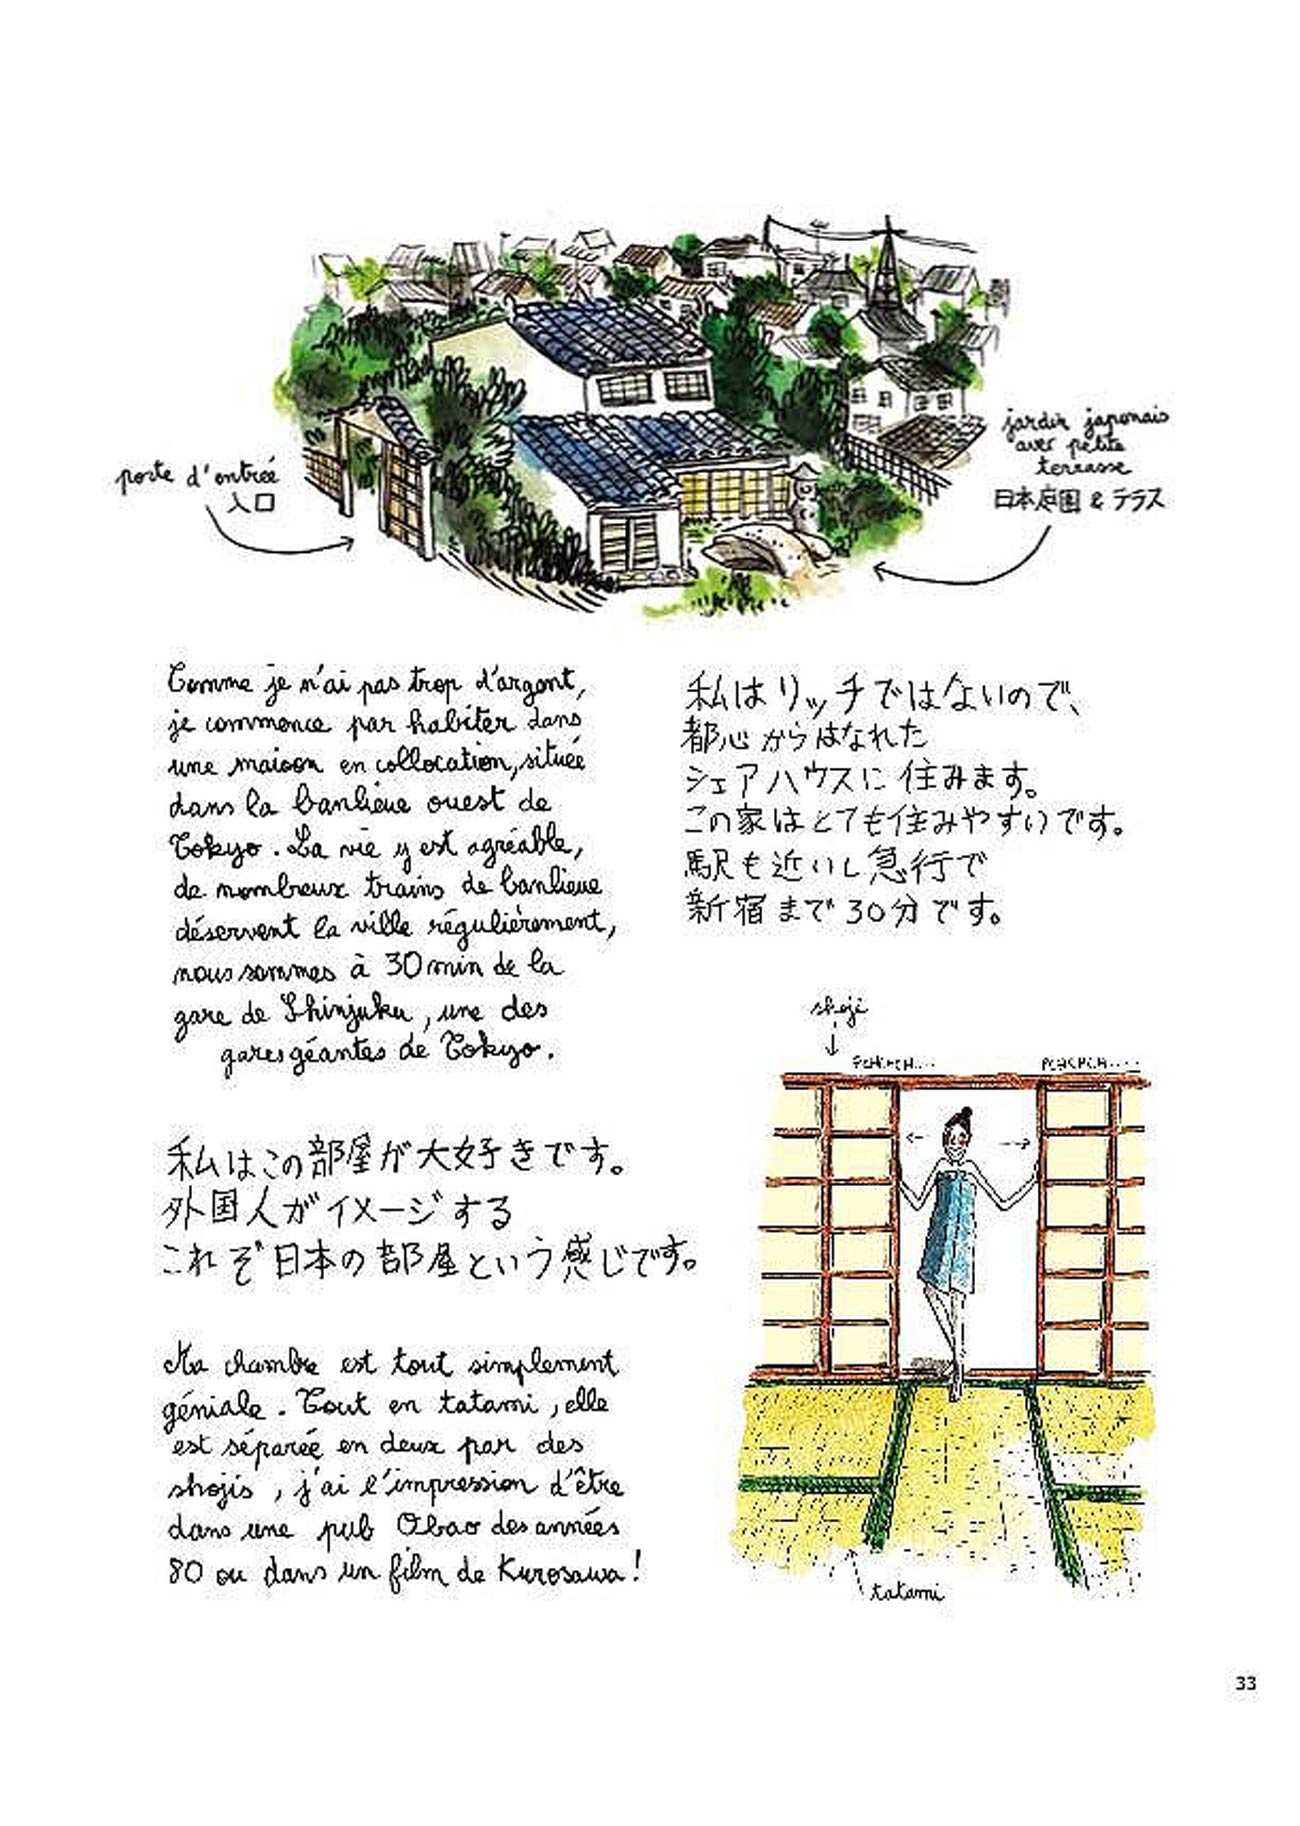 jardin japonais
avec petite
terrasse
日本庭園 & テラス
porte d'entrée
入口
Comme je n'ai pas trop d'argent,
je commence par habiter dans
une maison en collocation, située
dans la banlieue ouest de
Tokyo. La vie y est agréable,
de nombreux trains de banlieue
déservent la ville régulièrement,
nous sommes à 30 min de la
gare de Shinjuku, une des
gares géantes de Tokyo.
私はリッチではないので、
都心からはなれた
シェアハウスに住みます。
この家はとても住みやすいです。
駅も近いし急行で
新宿まで30分です。
shoji
PCHCHCH...
PCHCHCH....
私はこの部屋が大好きです。
外国人がイメージする
これぞ日本の部屋という感じです。
Ma chambre est tout simplement
géniale. Tout en tatami, elle
est séparée en deux par des
shojis, j'ai l'impression d'être
dans une pub Obao des années
80 ou dans un film de Kurosawa!
tatami
33